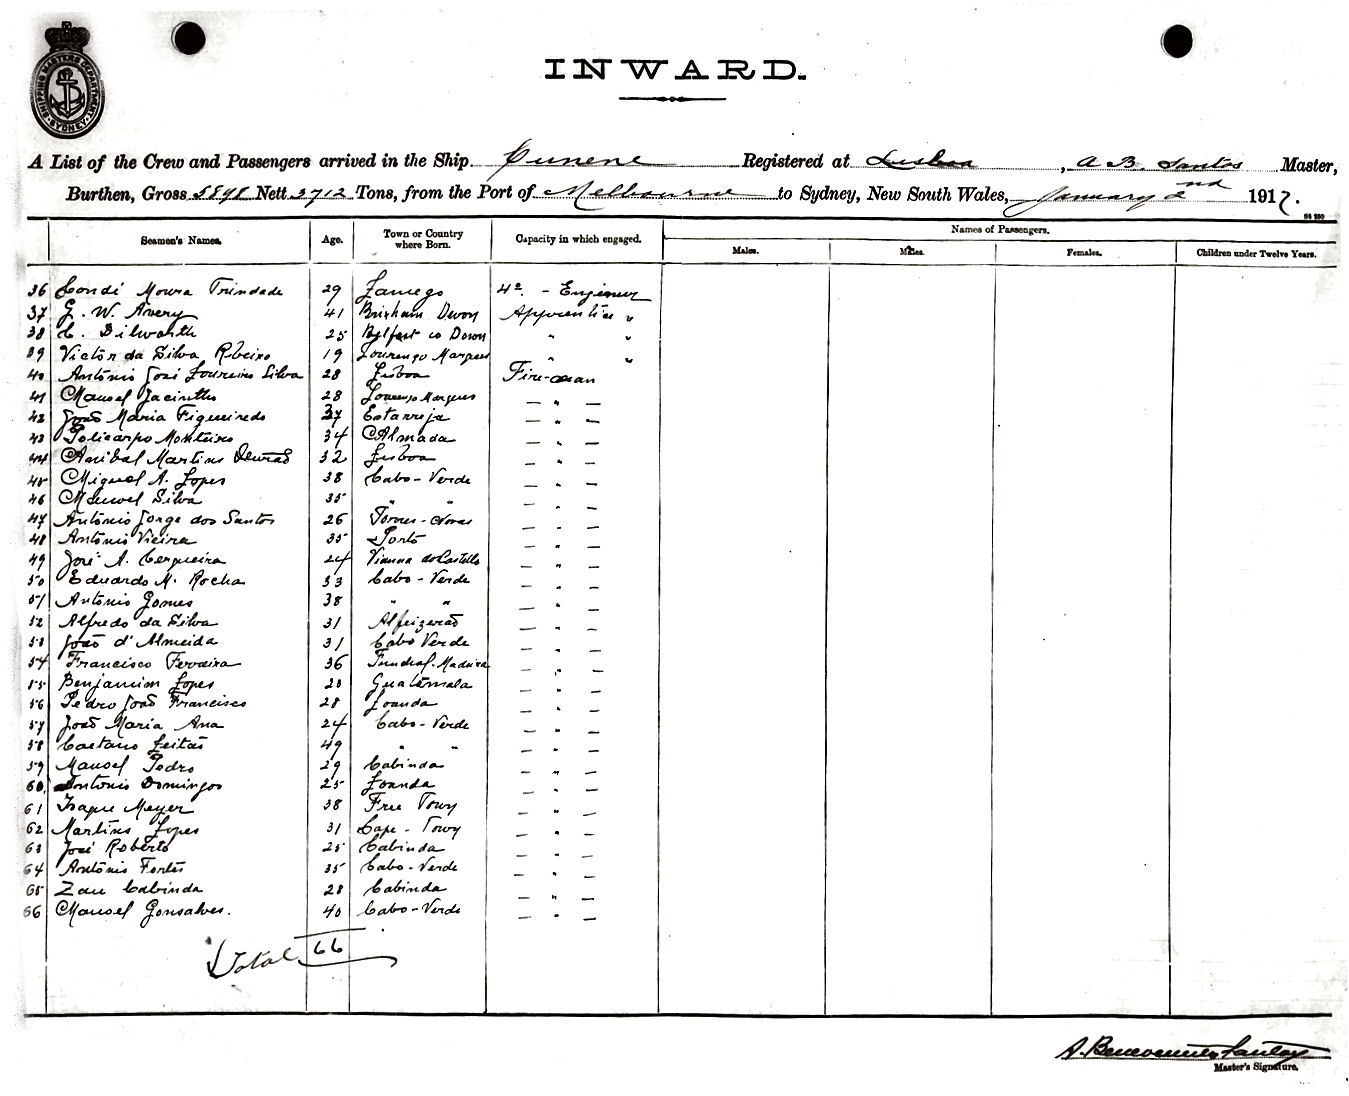 SHIPPING MASTERS DEPARTMENT
SYDNEY
INWARD.
A List of the Crew and Passengers arrived in the Ship Cunene Registered at Lisboa, A B. Santos Master,
Burthen, Gross 5898 Nett 3712 Tons, from the Port of Melbourne to Sydney, New South Wales, January 2nd 1917.
Seamen's Names. Age. Town or Country where Born. Capacity in which engaged. Names of Passengers.
Males. Males. Females. Children under Twelve Years.
36 Condé Moura Trindade 29 Lamego 4º. - Engineer
37 G. W. Avery 41 Brixham Devon Apprentice "
38 C. Dilworth 25 Belfast co Down " "
39 Victor da Silva Ribeiro 19 Lourenço Marques " "
40 António José Loureiro Silva 28 Lisboa Fire-man
41 Manoel Jacintho 28 Lourenço Marques — " —
42 João Maria Figueiredo 37 Estarreja — " —
43 Policarpo Monteiro 34 Almada — " —
44 Anibal Martins 32 Lisboa — " —
45 Miguel A. Lopes 38 Cabo-Verde — " —
46 Manoel Silva 35 " " — " —
47 António Jorge dos Santos 26 Torres-Novas — " —
48 António Vieira 35 Porto — " —
49 José A. Cerqueira 24 Vianna do Castello — " —
50 Eduardo M. Rocha 33 Cabo-Verde — " —
51 António Gomes 38 " " — " —
52 Alfredo da Silva 31 Alfeizerão — " —
53 João d'Almeida 31 Cabo Verde — " —
54 Francisco Ferreira 36 Funchal-Madeira — " —
55 Benjamim Lopes 23 Guatemala — " —
56 Pedro João Francisco 28 Loanda — " —
57 João Maria Ana 24 Cabo-Verde — " —
58 Caetano Leitão 49 " " — " —
59 Manoel Pedro 29 Cabinda — " —
60 António Domingos 25 Loanda — " —
61 Isaque Meyer 38 Free Town — " —
62 Martins Lopes 31 Cape-Town — " —
63 José Roberto 25 Cabinda — " —
64 António Fortes 35 Cabo-Verde — " —
65 Zau Cabinda 28 Cabinda — " —
66 Manoel Gonsalves. 40 Cabo-Verde — " —
Total 66
Master's Signature.